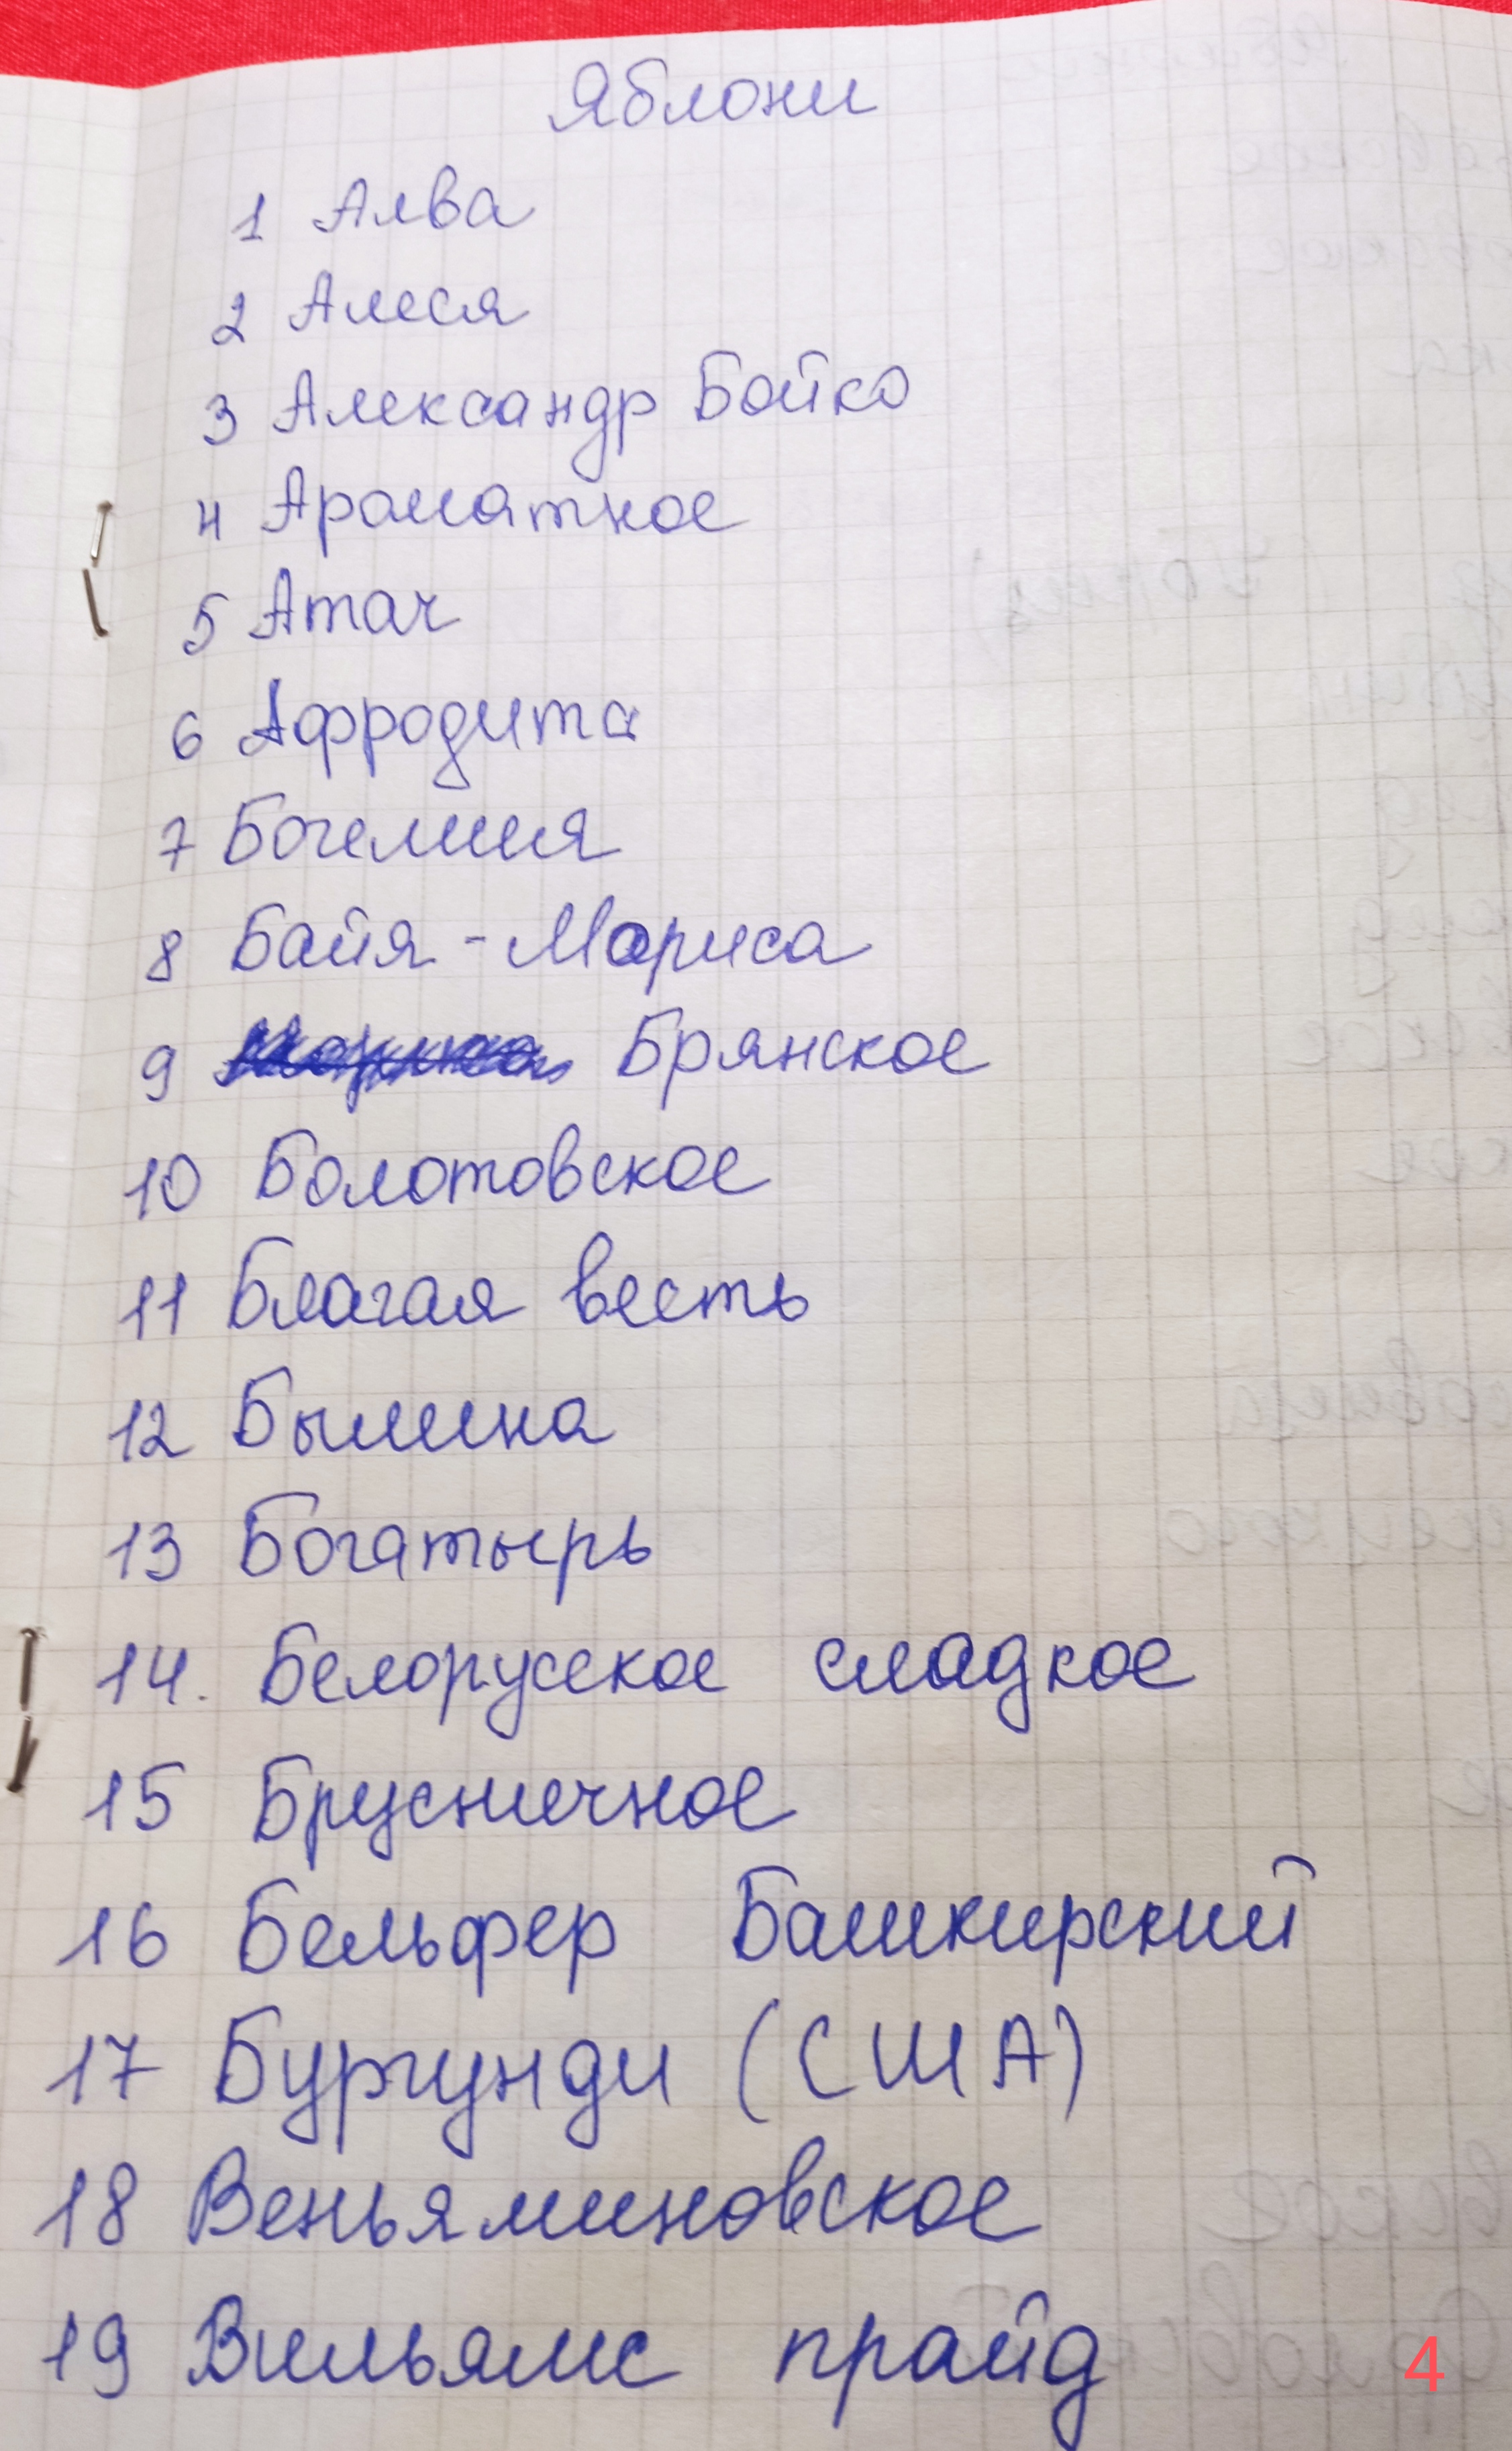 Яблони
1 Алва
2 Алеся
3 Александр Бойко
4 Ароматное
5 Атач
6 Афродита
7 Богемия
8 Байя - Мариса
9 Брянское
10 Болотовское
11 Благая весть
12 Былина
13 Богатырь
14. Белорусское сладкое
15 Брусничное
16 Бельфер Башкирский
17 Бургунди (США)
18 Веньяминовское
19 Вильямс прайд
4